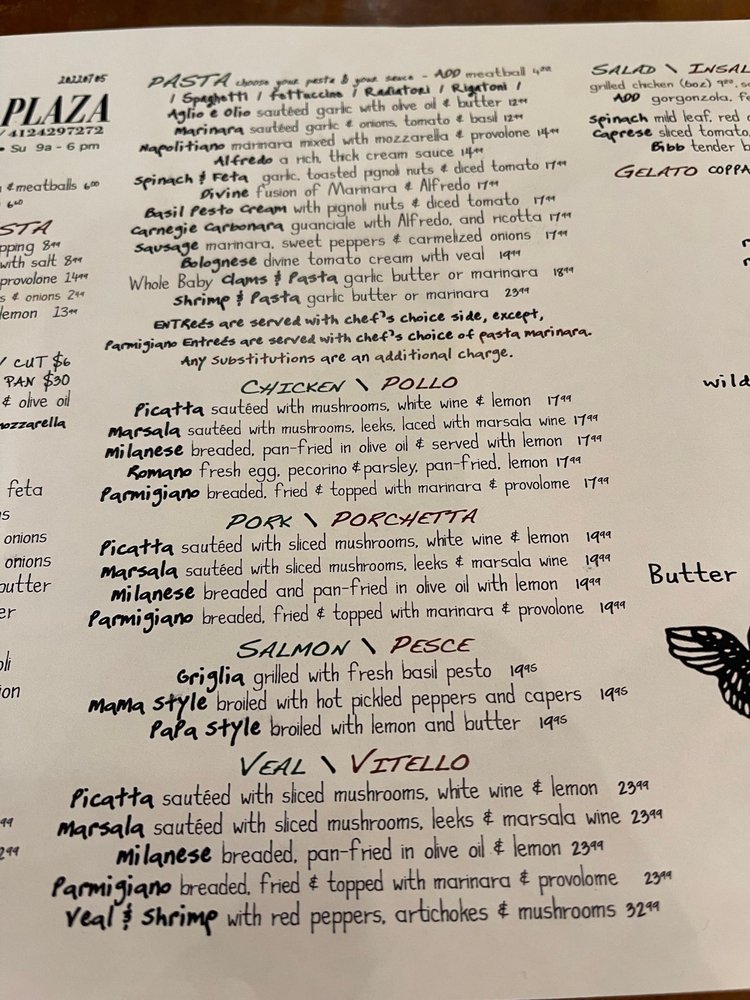 20220705
PLAZA
/ 4124297272
• Su 9a - 6 pm
& meatballs 6⁰⁰
6⁶⁰
STA
pping 8⁹⁹
with salt 8⁹⁹
provolone 14⁹⁹
s & onions 2⁹⁹
lemon 13⁹⁹
/ CUT $6
PAN $30
& olive oil
mozzarella
feta
ns
onions
onions
butter
er
oli
ion
99
2⁹⁹
PASTA choose your pasta & your sauce - ADD meatball 4⁰⁰
/ Spaghetti / Fettuccine / Radiatori / Rigatoni /
Aglio e Olio sautéed garlic with olive oil & butter 12⁹⁹
Marinara sautéed garlic & onions, tomato & basil 12⁹⁹
Napolitiano marinara mixed with mozzarella & provolone 14⁹⁹
Alfredo a rich, thick cream sauce 14⁹⁹
Spinach & Feta garlic, toasted pignoli nuts & diced tomato 17⁹⁹
Divine fusion of Marinara & Alfredo 17⁹⁹
Basil Pesto Cream with pignoli nuts & diced tomato 17⁹⁹
Carnegie Carbonara guanciale with Alfredo, and ricotta 17⁹⁹
Sausage marinara, sweet peppers & carmelized onions 17⁹⁹
Bolognese divine tomato cream with veal 19⁹⁹
Whole Baby Clams & Pasta garlic butter or marinara 18⁹⁹
Shrimp & Pasta garlic butter or marinara 23⁹⁹
ENTReés are served with chef's choice side, except,
Parmigiano Entreés are served with chef's choice of pasta marinara.
Any substitutions are an additional charge.
CHICKEN \ POLLO
Picatta sautéed with mushrooms, white wine & lemon 17⁹⁹
Marsala sautéed with mushrooms, leeks, laced with marsala wine 17⁹⁹
Milanese breaded, pan-fried in olive oil & served with lemon 17⁹⁹
Romano fresh egg, pecorino & parsley, pan-fried, lemon 17⁹⁹
Parmigiano breaded, fried & topped with marinara & provolome 17⁹⁹
PORK \ PORCHETTA
Picatta sautéed with sliced mushrooms, white wine & lemon 19⁹⁹
Marsala sautéed with sliced mushrooms, leeks & marsala wine 19⁹⁹
Milanese breaded and pan-fried in olive oil with lemon 19⁹⁹
Parmigiano breaded, fried & topped with marinara & provolone 19⁹⁹
SALMON \ PESCE
Griglia grilled with fresh basil pesto 19⁹⁵
Mama Style broiled with hot pickled peppers and capers 19⁹⁵
PaPa Style broiled with lemon and butter 19⁹⁵
VEAL \ VITELLO
Picatta sautéed with sliced mushrooms, white wine & lemon 23⁹⁹
Marsala sautéed with sliced mushrooms, leeks & marsala wine 23⁹⁹
Milanese breaded, pan-fried in olive oil & lemon 23⁹⁹
Parmigiano breaded, fried & topped with marinara & provolome 23⁹⁹
Veal & Shrimp with red peppers, artichokes & mushrooms 32⁹⁹
SALAD \ INSAL
grilled chicken (6oz) 9⁰⁰, s
ADD gorgonzola, fe
Spinach mild leaf, red o
Caprese sliced tomato,
Bibb tender b
GELATO COPPA
wild
Butter